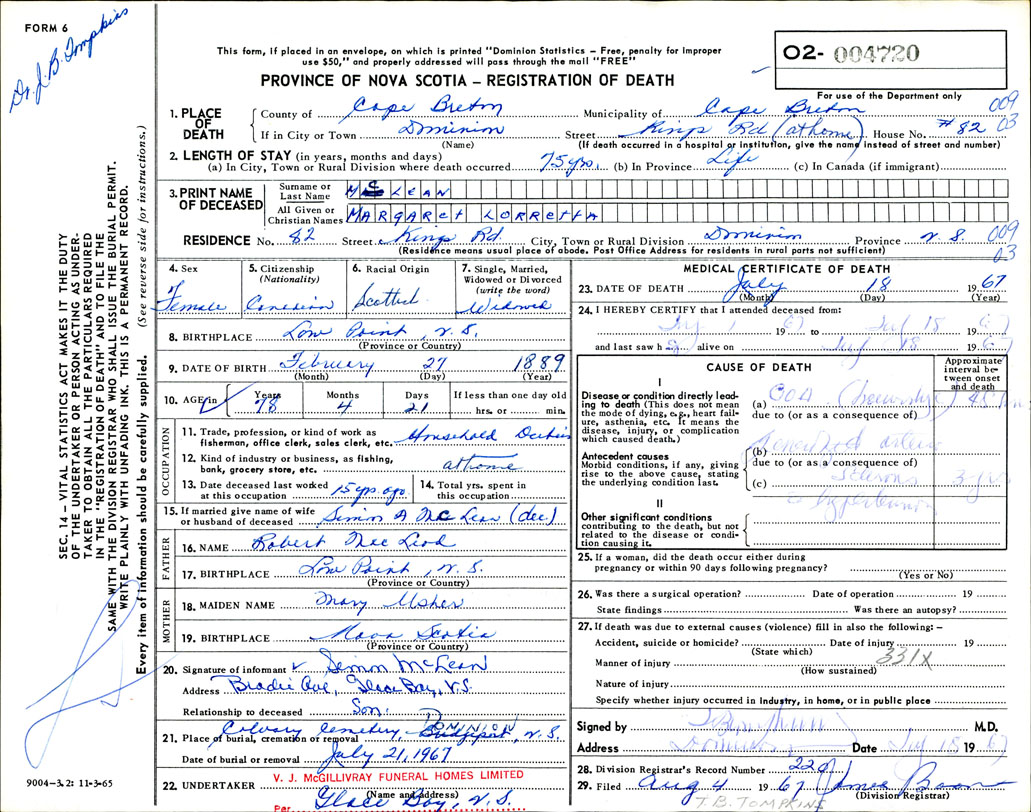 FORM 6
Dr. J. B. Tompkins
This form, if placed in an envelope, on which is printed "Dominion Statistics – Free, penalty for improper
use $50," and properly addressed will pass through the mail "FREE"
PROVINCE OF NOVA SCOTIA – REGISTRATION OF DEATH
O2- 004720
For use of the Department only
SEC. 14 – VITAL STATISTICS ACT MAKES IT THE DUTY
OF THE UNDERTAKER OR PERSON ACTING AS UNDER-
TAKER TO OBTAIN ALL THE PARTICULARS REQUIRED
IN THE "REGISTRATION OF DEATH" AND TO FILE THE
SAME WITH THE DIVISION REGISTRAR WHO SHALL ISSUE THE BURIAL PERMIT.
WRITE PLAINLY WITH UNFADING INK. THIS IS A PERMANENT RECORD.
Every item of information should be carefully supplied. (See reverse side for instructions.)
1. PLACE OF DEATH
County of Cape Breton Municipality of Cape Breton 009
If in City or Town Dominion Street Kings Rd (at home) House No. #82 03
(Name) (If death occurred in a hospital or institution, give the name instead of street and number)
2. LENGTH OF STAY (in years, months and days)
(a) In City, Town or Rural Division where death occurred 75 yrs. (b) In Province Life (c) In Canada (if immigrant)
3. PRINT NAME OF DECEASED
Surname or Last Name McLEAN
All Given or Christian Names MARGARET LORRETTA
RESIDENCE No. 82 Street Kings Rd. City, Town or Rural Division Dominion Province N.S. 009
(Residence means usual place of abode. Post Office Address for residents in rural parts not sufficient) 03
4. Sex Female
5. Citizenship (Nationality) Canadian
6. Racial Origin Scottish
7. Single, Married, Widowed or Divorced (write the word) Widowed
8. BIRTHPLACE Low Point, N.S.
(Province or Country)
9. DATE OF BIRTH February 27 1889
(Month) (Day) (Year)
10. AGE in Years 78 Months 4 Days 21 If less than one day old hrs. or min.
OCCUPATION
11. Trade, profession, or kind of work as fisherman, office clerk, sales clerk, etc. Household Duties
12. Kind of industry or business, as fishing, bank, grocery store, etc. at home
13. Date deceased last worked at this occupation 15 yrs. ago
14. Total yrs. spent in this occupation
15. If married give name of wife or husband of deceased Simon A McLean (dec.)
FATHER
16. NAME Robert MacLeod
17. BIRTHPLACE Low Point, N.S.
(Province or Country)
MOTHER
18. MAIDEN NAME Mary Usher
19. BIRTHPLACE Nova Scotia
(Province or Country)
20. Signature of informant Simon McLean
Address Brodie Ave, Glace Bay, N.S.
Relationship to deceased Son
21. Place of burial, cremation or removal Calvary Cemetery, DOMINION Bridgeport, N.S.
Date of burial or removal July 21, 1967
22. UNDERTAKER V. J. McGILLIVRAY FUNERAL HOMES LIMITED
(Name and address)
Per Glace Bay, N.S.
9004-3.2: 11-3-65
MEDICAL CERTIFICATE OF DEATH
23. DATE OF DEATH July 18 1967
(Month) (Day) (Year)
24. I HEREBY CERTIFY that I attended deceased from:
July 1 1967 to July 18 1967
and last saw her alive on July 18 1967
CAUSE OF DEATH
Approximate interval between onset and death
I
Disease or condition directly lead-
ing to death (This does not mean
the mode of dying, e.g., heart fail-
ure, asthenia, etc. It means the
disease, injury, or complication
which caused death.)
(a)
due to (or as a consequence of)
Antecedent causes
Morbid conditions, if any, giving
rise to the above cause, stating
the underlying condition last.
(b) Generalized arterio
due to (or as a consequence of)
(c) sclerosis 3 yrs
& hypertension
II
Other significant conditions
contributing to the death, but not
related to the disease or condi-
tion causing it.
25. If a woman, did the death occur either during
pregnancy or within 90 days following pregnancy?
(Yes or No)
26. Was there a surgical operation? Date of operation 19
State findings Was there an autopsy?
27. If death was due to external causes (violence) fill in also the following: –
Accident, suicide or homicide? Date of injury 19
(State which)
Manner of injury 331X
(How sustained)
Nature of injury
Specify whether injury occurred in industry, in home, or in public place
Signed by M.D.
Address Dominion Date July 18 1967
28. Division Registrar's Record Number 220
29. Filed Aug 4 1967 James
(Division Registrar)
T.B. TOMPKINS